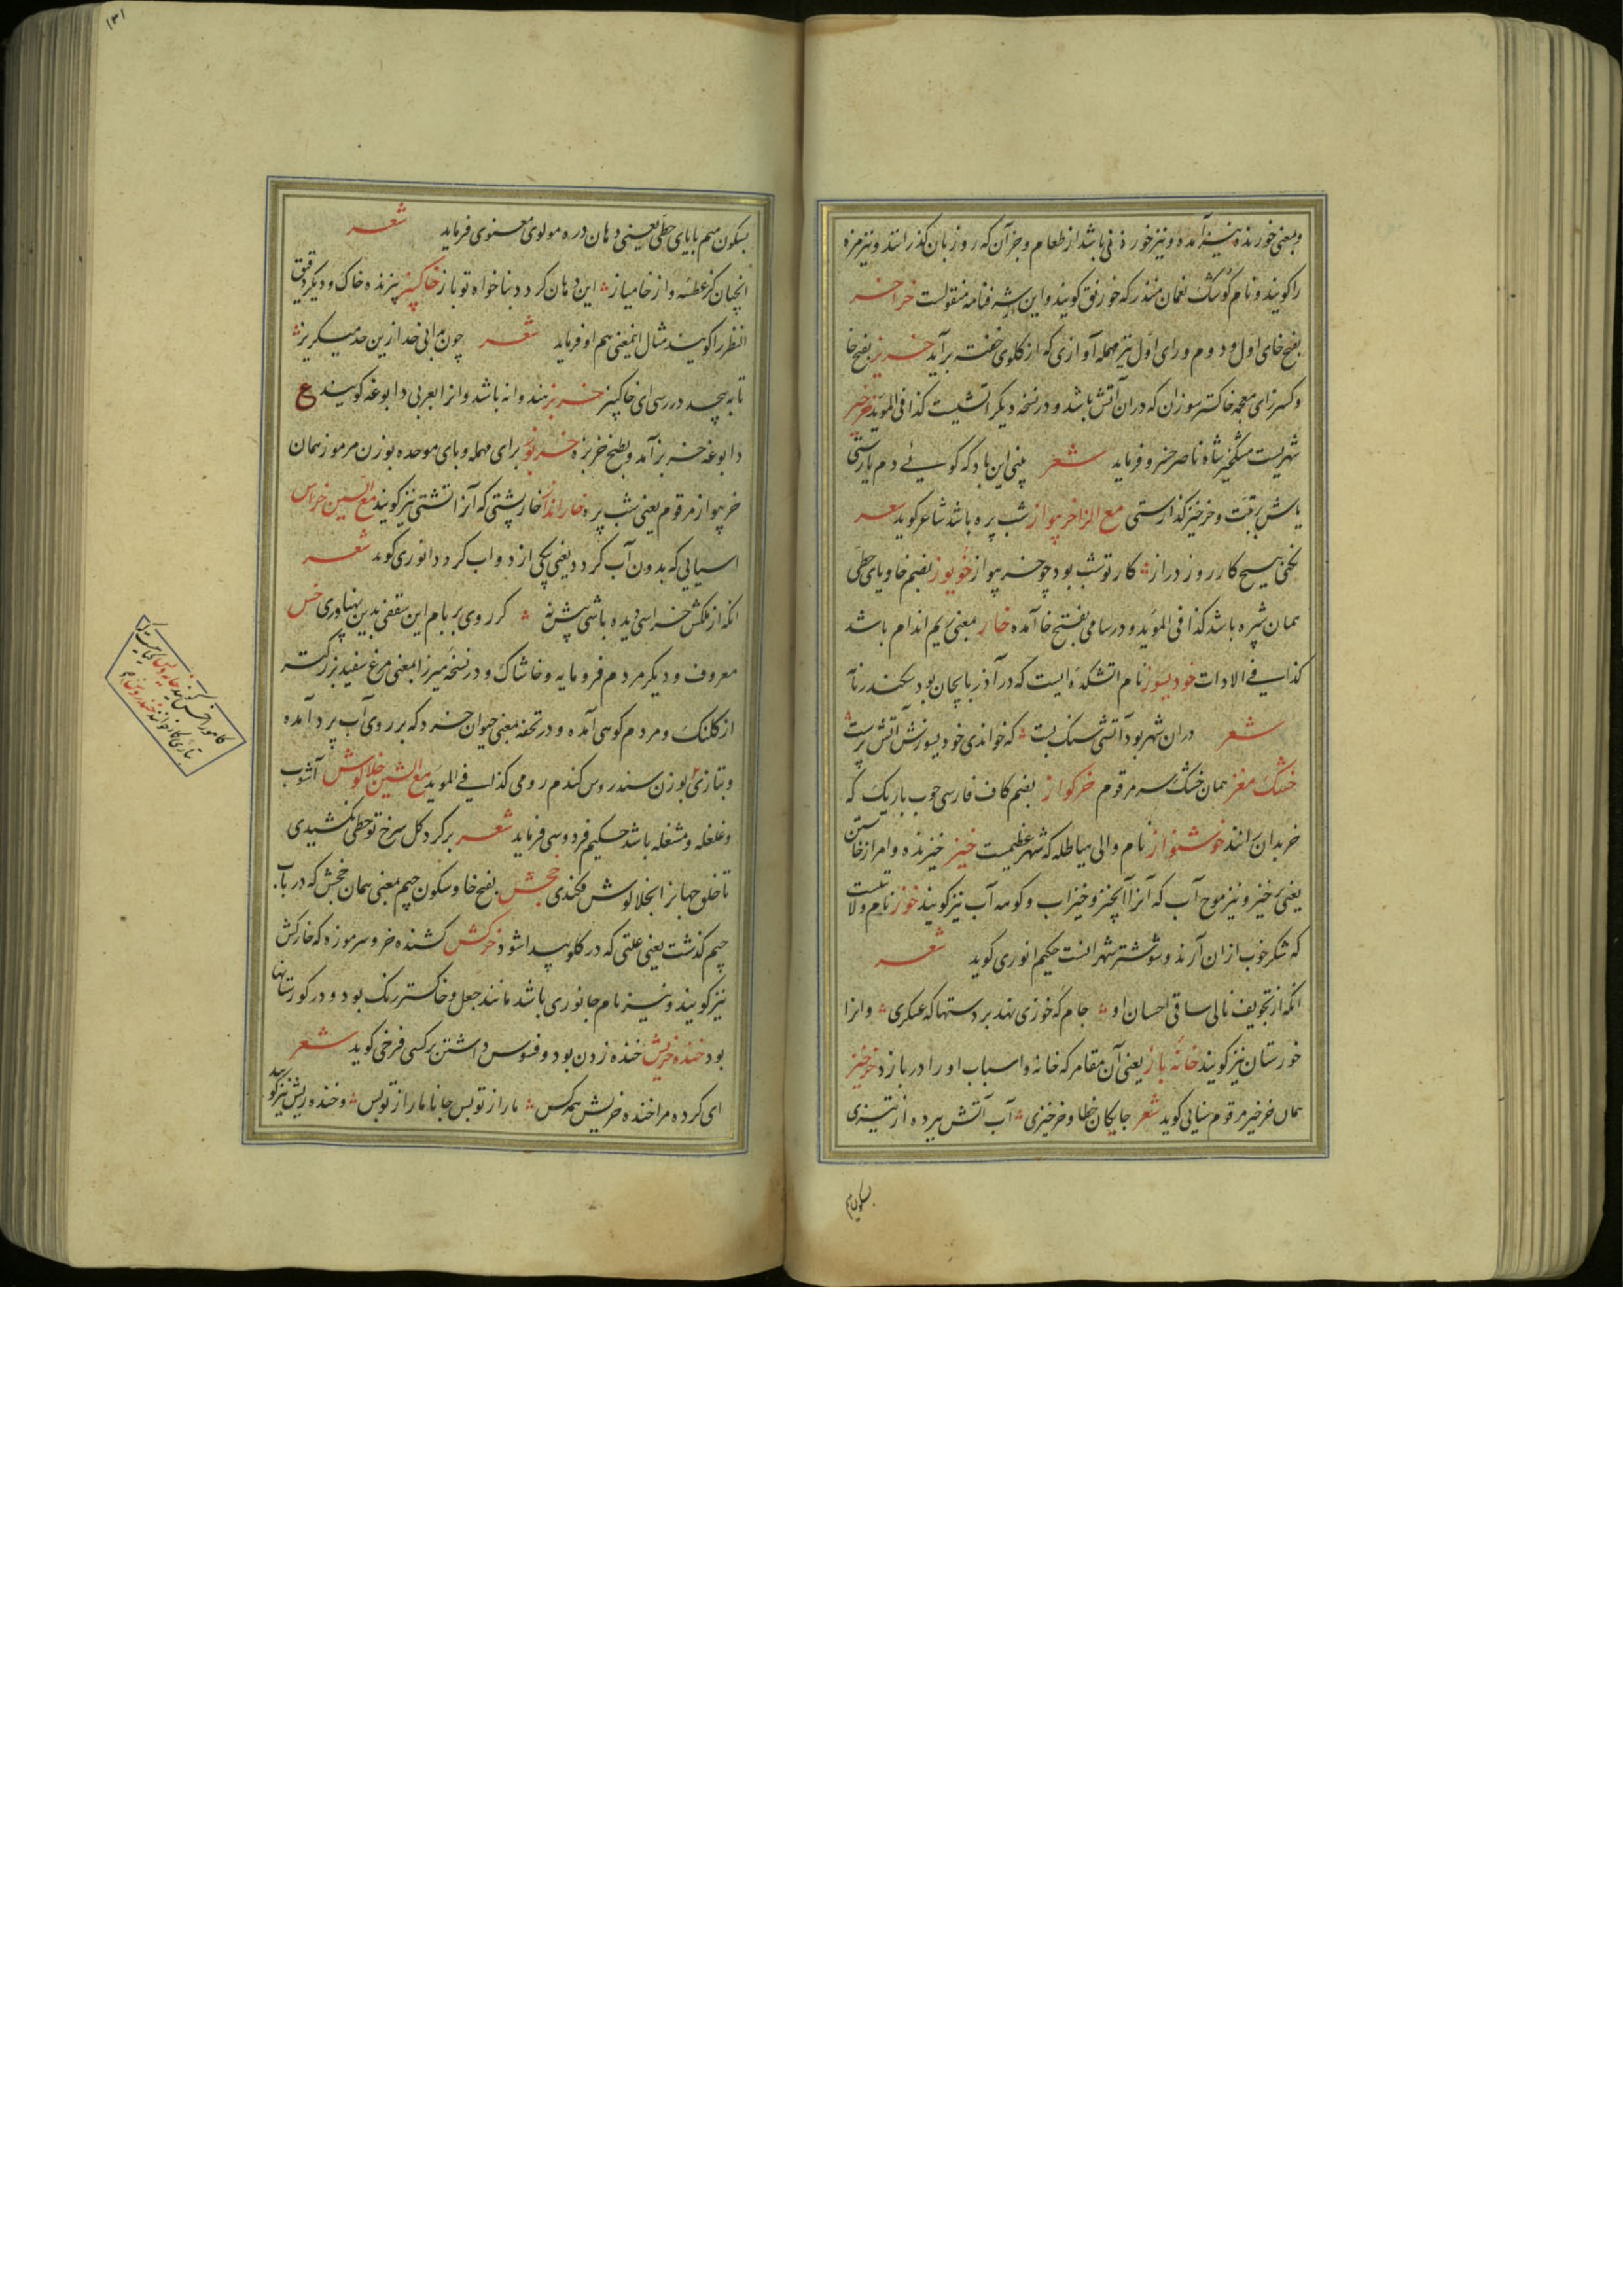 وبمعنی خورنده نیز آمده و نیز خوردنی باشد از طعام و جز آن که روز بان گذرانند و نیز مزه
را گویند و نام کوشک نعمان منذر که خورنق گویند و این شرفنامه منقولست خراخر
بفتح خای اول و دوم و رای اول نیز مهمله آوازی که از گلوی خفته برآید خریز بفتح خا
و کسر زای معجمه خاکستر سوزان که در ان آتش باشد و در نسخه دیگر آتشیست کذا فی الموید خرخیز
شهریست مشکخیز شاه ناصر خسرو فرماید شعر بینی این باد که گوئی دم یارستی
یاش بر تبت و خرخیز گذارستی مع الزا خربیواز شب پره باشد شاعر گوید شعر
نکنی هیچ کار روز دراز کار تو شب بود چو خربیواز خویوز بضم خا و یای حطی
همان شپره باشد کذا فی الموید و در سامی بفتح خا آمده خاز بمعنی ریم اندام باشد
کذا فی الادات خودیسوز نام آتشکده ایست که در آذربایجان بود سکندرنامه
شعر در ان شهر بود آتشی سنک بست که خواندی خودیسوزش آتش پرست
خشک مغز همان خشک سر مرقوم خرکواز بضم کاف فارسی چوب باریک که
خر بدان رانند خوشنواز نام والی هیاطله که شهر عظیمست خیز خیزنده و امر از خاستن
یعنی خیز و نیز موج آب که آنرا آبخیز و خیزاب و کوهه آب نیز گویند خوز نام ولایتیست
که شکر خوب از ان آرند و شوشتر شهر انست حکیم انوری گوید شعر
انکه از تجویف نالی ساقی احسان او جام که خوزی نهد بر دستها که عسکری و انرا
خوزستان نیز گویند خانه باز یعنی آن مقامر که خانه و اسباب او را در بازد خرخیز
همان خرخیر مرقوم سنایی گوید شعر جایکان خطا و خرخیزی آب آتش ببرده از تیزی
بسکون میم
۱۳۱
بسکون میم با یای حطی یعنی دهان دره مولوی معنوی فرماید شعر
انچنان کز عطسه و از خامیاز این دهان گردد بناخواه تو باز خاکبیز بیزنده خاک و دیگر دقیق
النظر را گویند مثال اینمعنی هم او فرماید شعر چون بدانی خد ازین حد میگریز
تا به بیحد در رسی ای خاکبیز خربز هندوانه باشد و انرا بعربی دابوغه گویند ع
دابوغه خربز آمد و بطیخ خربزه خربوز برای مهمله و بای موحده بوزن مرموز همان
خربیواز مرقوم یعنی شب پره خارانداز خارپشتی که آنرا تشی نیز گویند مع السین خراس
اسیایی که بدون آب گردد یعنی یکی از دواب گرداند انوری گوید شعر
انکه از ملکش خراسی دیده باشی بیش نه گر روی بر بام این سقف بدین پهناوری خس
معروف و دیگر مردم فرومایه و خاشاک و در نسخه میرزا بمعنی مرغ سفید بزرگتر
از کلنک و مردم کوهی آمده و در تحفه بمعنی حیوان خرد که بر روی آب پرد آمده
و بتازی بوزن سندروس گندم رومی کذا فی الموید مع الشین خلالوش آشوب
و غلغله و مشغله باشد حکیم فردوسی فرماید شعر بر گرد گل سرخ تو خطی بکشیدی
تا خلق جهانرا بخلالوش فکندی خجش بفتح خا و سکون جیم بمعنی همان خجش که در باب
جیم گذشت یعنی علتی که در گلو پیدا شود خرکش کشنده خر و سرموزه که خارکش
نیز گویند و نیز نام جانوری باشد مانند جعل و خاکستر رنک بود و در گورستانها
بود خنده خریش خنده زدن بود و فسوس داشتن بر کسی فرخی گوید شعر
ای کرده مرا خنده خریش همه کس ما را ز تو بس جانا ما را ز تو بس و خنده ریش نیز گویند